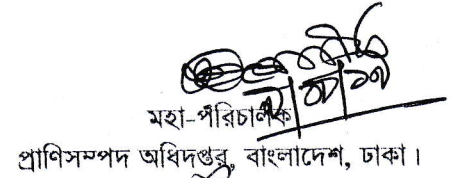 মহা-পরিচালক
প্রাণিসম্পদ অধিদপ্তর, বাংলাদেশ, ঢাকা।